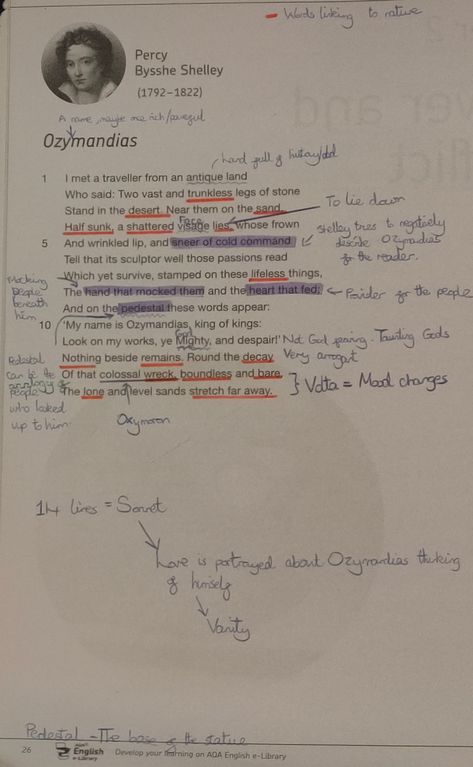 - Words linking to nature
Percy
Bysshe Shelley
(1792–1822)
A name, maybe one rich/powerful
Ozymandias
hard full of history/old
1 I met a traveller from an antique land
Who said: Two vast and trunkless legs of stone
Stand in the desert. Near them on the sand,
To lie down
Face
Half sunk, a shattered visage lies, whose frown
5 And wrinkled lip, and sneer of cold command
Shelley tries to negatively
describe Ozymandias
for the reader.
Tell that its sculptor well those passions read
Which yet survive, stamped on these lifeless things,
The hand that mocked them and the heart that fed;
Provider for the people
Mocking
people
beneath
him
And on the pedestal these words appear:
10 'My name is Ozymandias, king of kings:
Look on my works, ye Mighty, and despair!'
God
Not God fearing - Taunting Gods
Very arrogant
Nothing beside remains. Round the decay
Of that colossal wreck, boundless and bare,
The lone and level sands stretch far away.
} Volta = Mood changes
Pedestal
can be the
analogy of
people
who looked
up to him
Oxymoron
14 lines = Sonnet
Love is portrayed about Ozymandias thinking
of himself
Vanity
Pedestal - The base of the statue
26 AQA English e-Library Develop your learning on AQA English e-Library